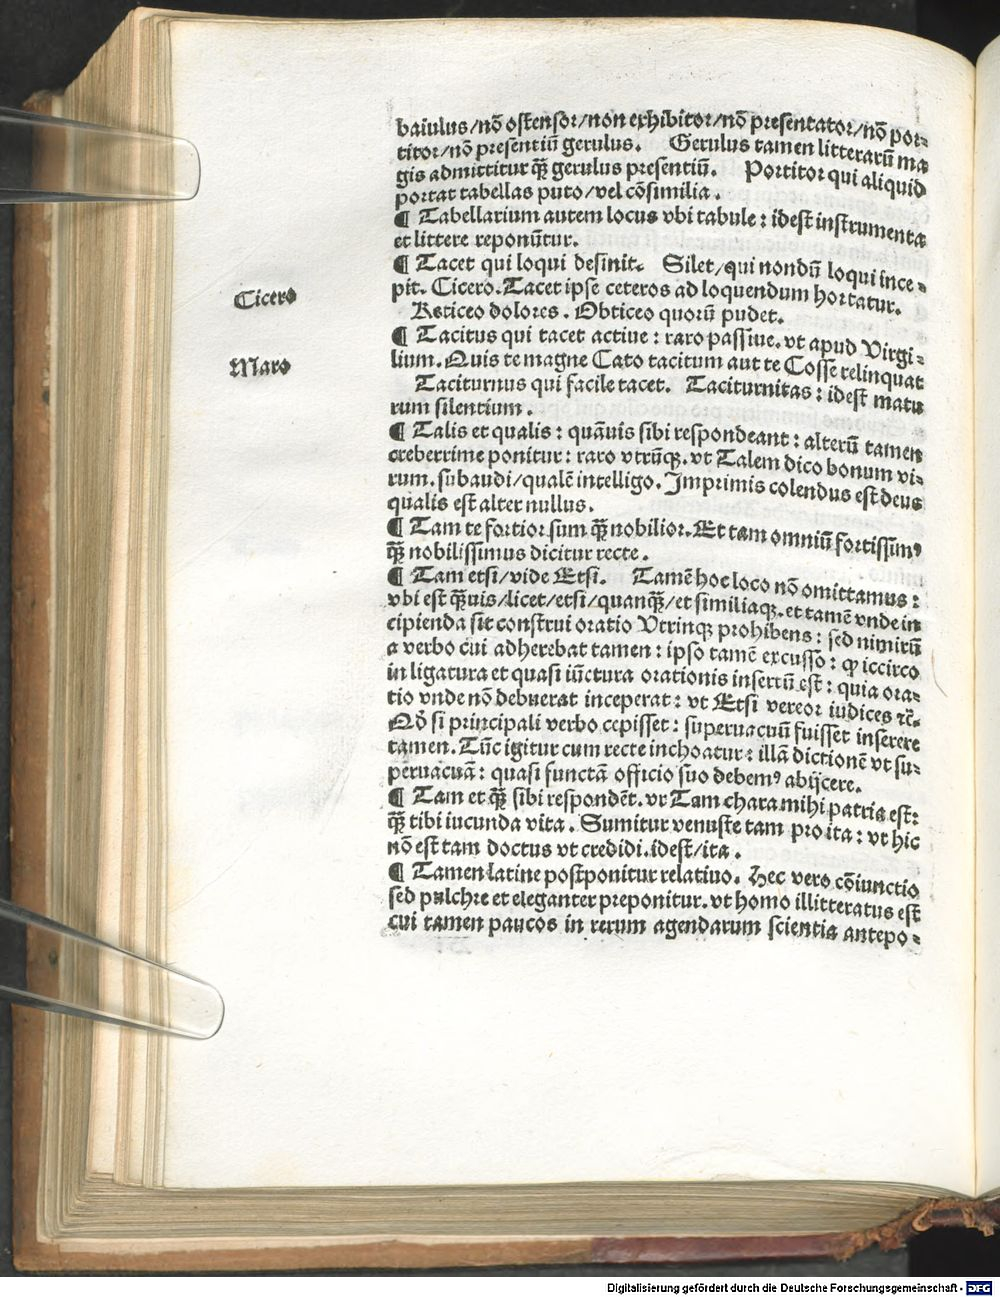 baiulus/nō ostensor/non exhibitor/nō presentator/nō por-
titor/nō presentiū gerulus. Gerulus tamen litterarū ma
gis admittitur q̄ꝫ gerulus presentiū. Portitor qui aliquid
portat tabellas puto/vel cōsimilia.
¶ Tabellarium autem locus vbi tabule: idest instrumenta
et littere reponūtur.
¶ Tacet qui loqui desinit. Silet/qui nondū loqui ince-
pit. Cicero. Tacet ipse ceteros ad loquendum hortatur.
Cicero
Reticeo dolores. Obticeo quorū pudet.
¶ Tacitus qui tacet actiue: raro passiue. vt apud Virgi-
lium. Quis te magne Cato tacitum aut te Cosse relinquat
Maro
Taciturnus qui facile tacet. Taciturnitas: idest matu
rum silentium.
¶ Talis et qualis: quāuis sibi respondeant: alterū tamen
creberrime ponitur: raro vtrūqꝫ. vt Talem dico bonum vi-
rum. subaudi/qualē intelligo. Imprimis colendus est deus
qualis est alter nullus.
¶ Tam te fortior sum q̄ꝫ nobilior. Et tam omniū fortissimꝰ
q̄ꝫ nobilissimus dicitur recte.
¶ Tam etsi/vide Etsi. Tamē hoc loco nō omittamus:
vbi est q̄ꝫuis/licet/etsi/quanq̄ꝫ/et similiaqꝫ. et tamē vnde in
cipienda sit construi oratio Vtrinqꝫ prohibens: sed nimirū
a verbo cui adherebat tamen: ipso tamē excusso: ꝙ iccirco
in ligatura et quasi iūctura orationis insertū est: quia ora-
tio vnde nō debuerat inceperat: vt Etsi vereor iudices ⁊c̄.
Nō si principali verbo cepisset: superuacuū fuisset inserere
tamen. Tūc igitur cum recte inchoatur: illā dictionē vt su-
peruacuā: quasi functā officio suo debemꝰ abijcere.
¶ Tam et q̄ꝫ sibi respondēt. vt Tam chara mihi patria est:
q̄ꝫ tibi iucunda vita. Sumitur venuste tam pro ita: vt hic
nō est tam doctus vt credidi. idest/ita.
¶ Tamen latine postponitur relatiuo. Hec vero cōiunctio
sed pulchre et eleganter preponitur. vt homo illitteratus est
cui tamen paucos in rerum agendarum scientia antepo-
Digitalisierung gefördert durch die Deutsche Forschungsgemeinschaft - DFG